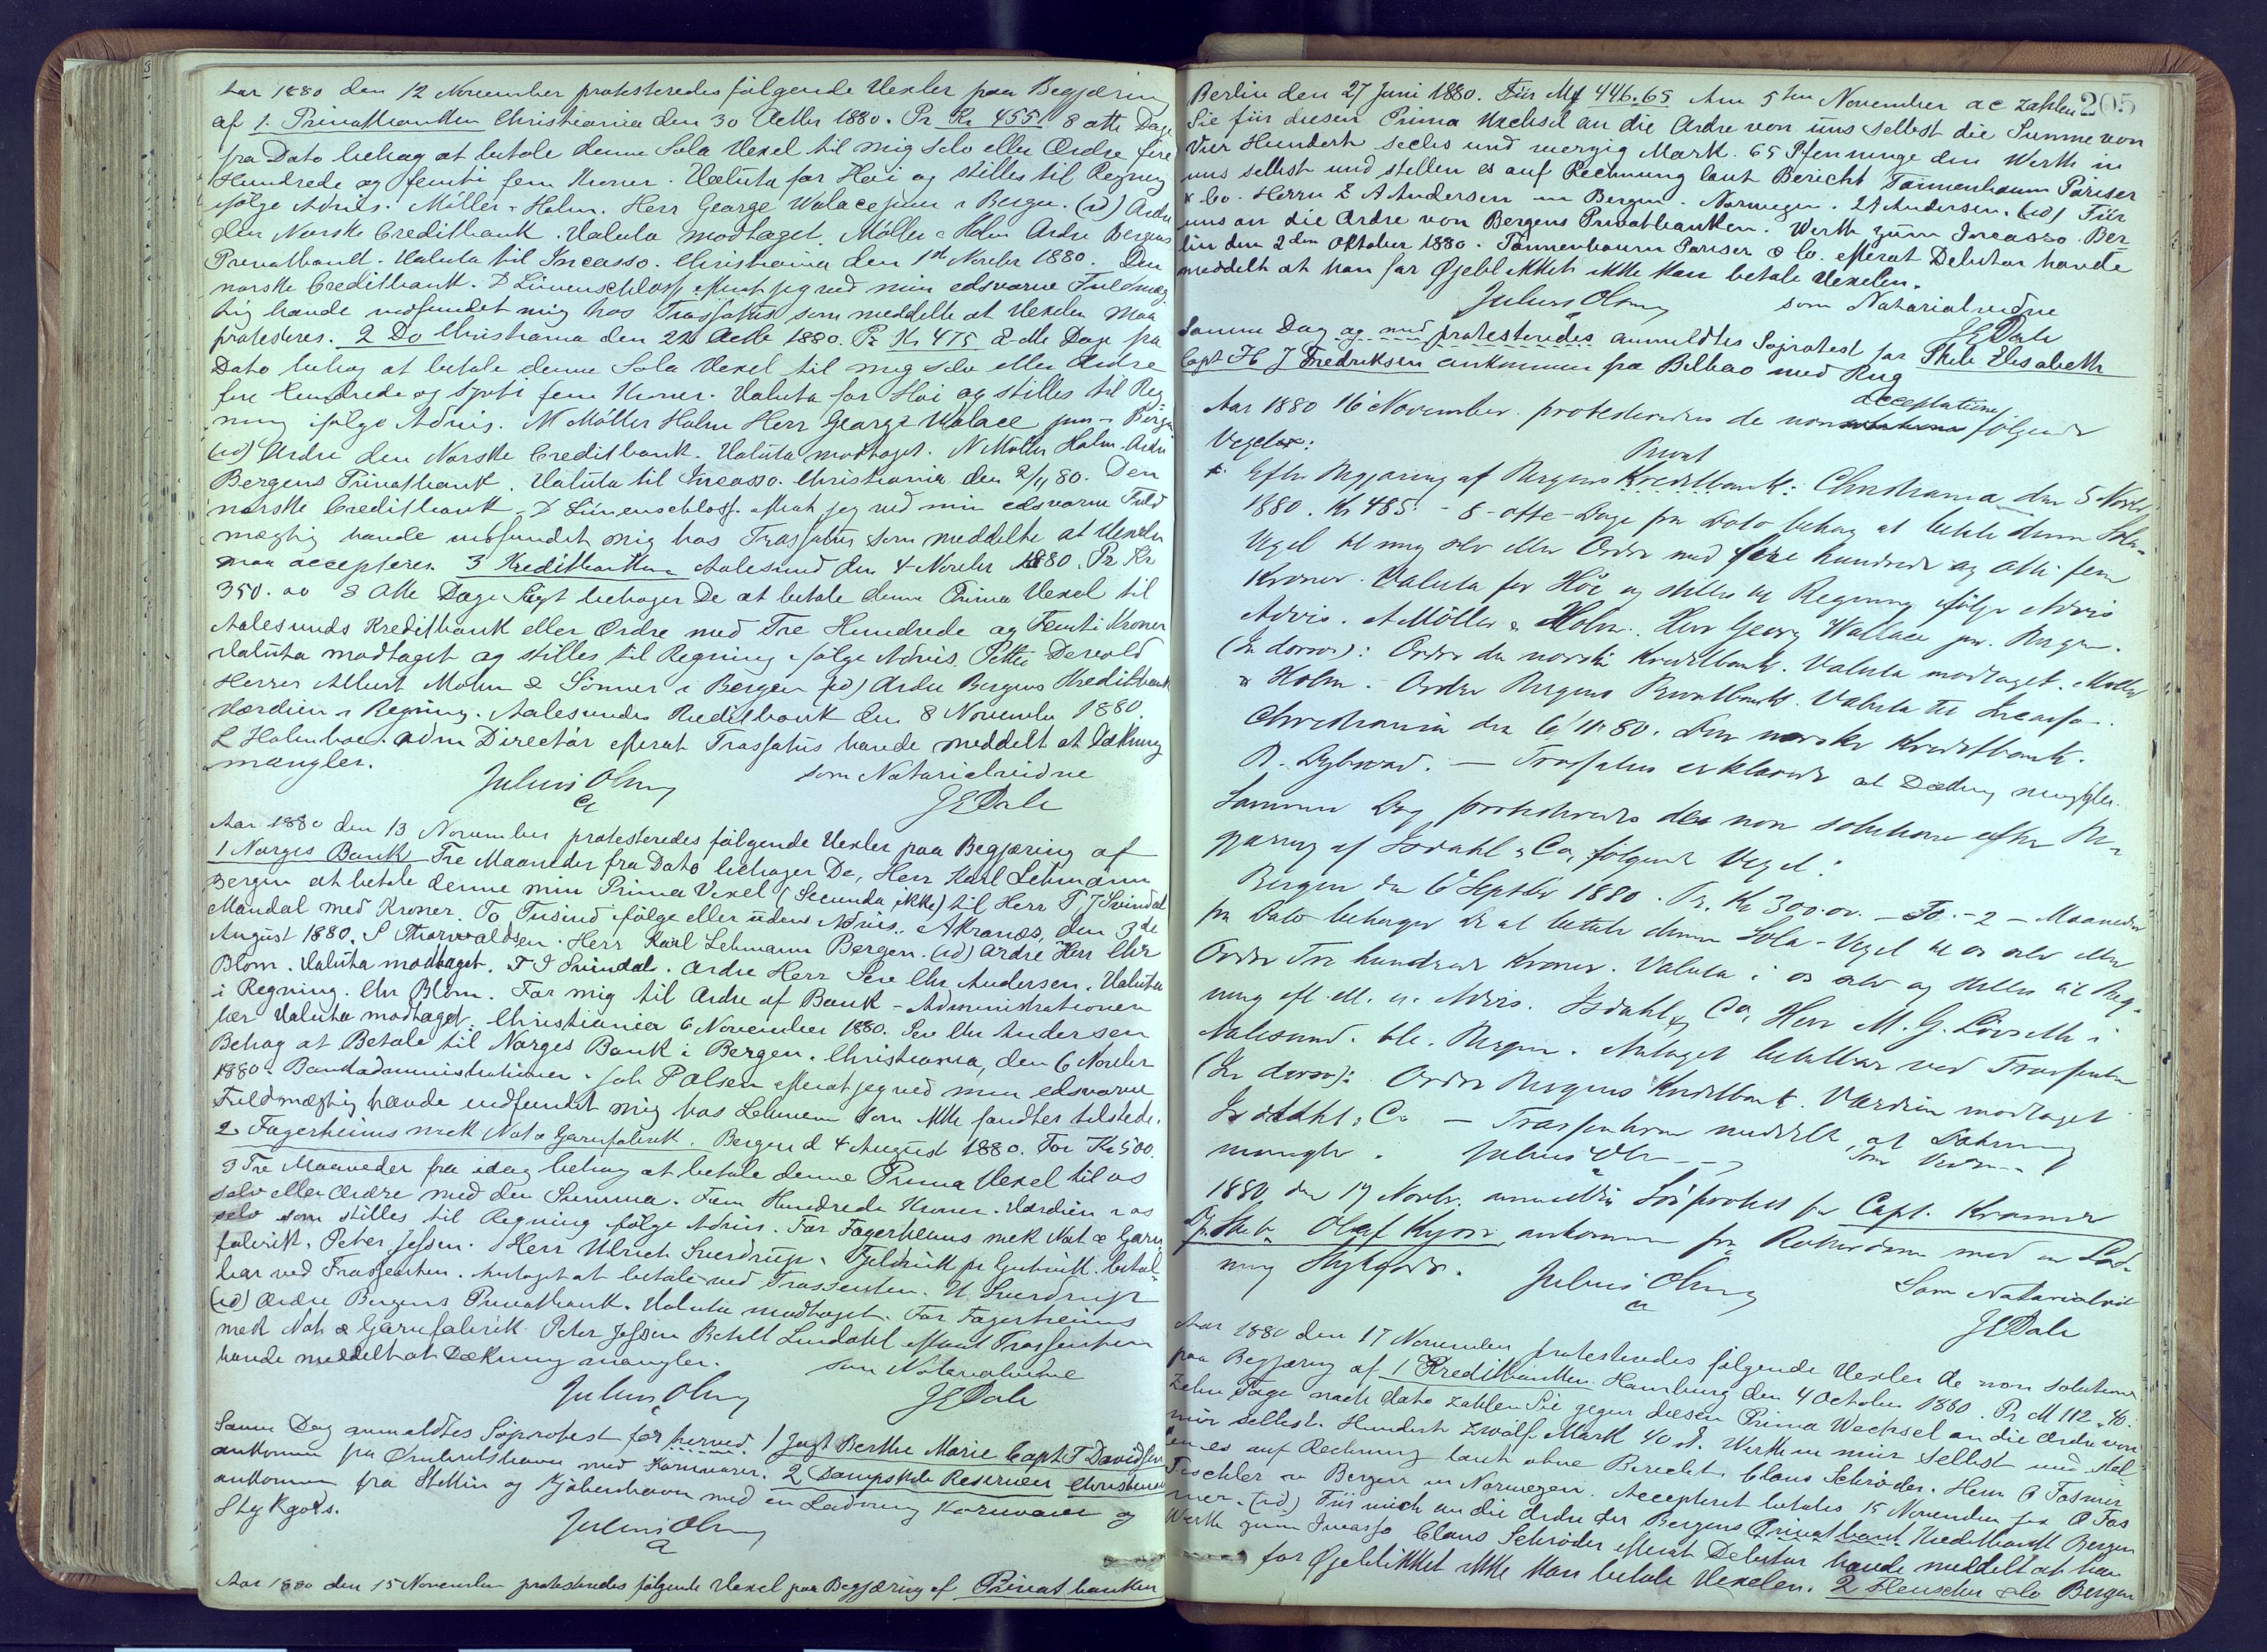 Aar 1880 den 12 November protesteredes følgende Vexler paa Begjæring
af 1. Privatbanken Christiania den 30 Octbr 1880. Pr Kr 455 8 otte Dage
fra Dato behag at betale denne Sola Vexel til mig selv eller Ordre fire
Hundrede og femti fem Kroner. Valuta for Høi og stilles til Regning
ifølge Advis. Möller & Holm. Herr George Walace jun i Bergen. (id) Ordre
den Norske Creditbank. Valuta modtaget. Møller & Holm Ordre Bergens
Privatbank. Valuta til Incasso. Christiania den 1st Novbr 1880. Den
norske Creditbank. D Lünenschloss efterat jeg ved min edsvorne Fuldmæg
tig havde indfundet mig hos Trassatus som meddelte at Vexelen maa
protesteres. 2 Do Christiania den 22 Octb 1880. Pr Kr 475 8 otte Dage fra
Dato behag at betale denne Sola Vexel til mig selv eller Ordre
fire Hundrede og sytti fem Kroner. Valuta for Høi og stilles til Reg-
ning ifølge Advis. N Möller Holm Herr George Walace jun i Bergen
(id) Ordre den Norske Creditbank. Valuta modtaget. N Möller Holm. Ordre
Bergens Privatbank. Valuta til Incasso. Christiania den 2/11 80. Den
norske Creditbank. D Lünenschloss. efterat jeg ved min edsvorne Fuld
mægtig havde indfundet mig hos Trassatus som meddelte at Vexelen
maa accepteres. 3 Kreditbanken Aalesund den 4 Novbr 1880. Pr Kr
350.00 8 otte Dage Sigt behager De at betale denne Prima Vexel til
Aalesunds Kreditbank eller Ordre med Tre Hundrede og Femti Kroner
Valuta modtaget og stilles til Regning ifølge Advis. Petter Devold
Herrer Albert Mohn & Sönner i Bergen (id) Ordre Bergens Kreditbank
Værdien i Regning. Aalesunds Kreditbank den 8 November 1880.
L Holmboe. adm Directør efterat Trassatus havde meddelt at Dækning
mangler.
Julius Olsen som Notarialvidne
JEDale
Aar 1880 den 13 November protesteredes følgende Vexler paa Begjæring af
1 Norges Bank Tre Maaneder fra Dato behager De, Herr Karl Lehmann
Bergen at betale denne min Prima Vexel (Secunda ikke) til Herr T J Svindal
Mandal med Kroner. To Tusind ifølge eller uden Advis. Akranæs, den 3de
August 1880. S Thorvaldsen. Herr Karl Lehmann Bergen. (id) Ordre Herr Chr
Blom. Valuta modtaget. T J Svindal. Ordre Herr Sev Chr Andersen. Valuta
i Regning. Chr Blom. For mig til Ordre af Bank-Administrationen
her Valuta modtaget. Christiania 6 November 1880. Sev Chr Andersen
Behag at Betale til Norges Bank i Bergen. Christiania, den 6 Novbr
1880. Bankadministrationen. Joh Polsen efterat jeg ved min edsvorne
Fuldmægtig havde indfundet mig hos Lehmann som ikke fandtes tilstede.
2 Fagerheims mek Not & Garnfabrik. Bergen d 4 August 1880. For Kr 500.
3 Tre Maaneder fra idag behag at betale denne Prima Vexel til os
selv eller Ordre med den Summa. Fem Hundrede Kroner. Værdien i os
selv som stilles til Regning ifølge Advis. For Fagerheims mek Not & Garn
fabrik. Peter Jessen. Herr Ulrich Sverdrup. Fjeldvik pr Gutvik. betal-
bar ved Trassenten. Antaget at betale ved Trassenten. U. Sverdrup
(id) Ordre Bergens Privatbank. Valuta modtaget. For Fagerheims
mek Not & Garnfabrik Peter Jessen Bchill Lindahl efterat Trassenten
havde meddelt at Dækning mangler. som Notarialvidne
Julius Olsen JEDale
Samme Dag anmeldtes Søprotest for herved. 1 Jagt Berthe Marie Capt. T Davidsen
ankommen fra med Kornvarer. 2 Dampskib Reserven Christensen
ankommen fra Stettin og Kjøbenhavn med en Ladning Kornvarer og
Stykgods.
Julius Olsen
Aar 1880 den 15 November protesteredes følgende Vexel paa Begjæring af Privatbanken
205
Berlin den 27 Juni 1880. Für Mk 446.65 Am 5ten November ac zahlen
Sie für diesen Prima Wechsel an die Ordre von uns selbst die Summe von
Vier Hundert sechs und vierzig Mark. 65 Pfenninge den Werth in
uns selbst und stellen es auf Rechnung laut Bericht Tannenbaum Pariser
& Co. Herrn Z A Andersen in Bergen. Norwegen. Z A Andersen. (id) Für
uns an die Ordre von Bergens Privatbanken. Werth zum Incasso. Ber-
lin den 2den Oktober 1880. Tannenbaum Pariser & Co. efterat Debitor havde
meddelt at han for Øjeblikket ikke kan betale Vexelen.
Julius Olsen som Notarialvidne
JEDale
Samme Dag og med protesteredes anmeldtes Søprotest for Skib Elisabeth
Capt H J Fredriksen ankommen fra Bilbao med Rug
acceptatione
Aar 1880 16 November. protesteredes de non følgende
Vexler:
Privat
Efter Begjæring af Bergens Kreditbank: Christiania den 5 Novbr
1880. Kr 485. - 8 - otte - Dage fra Dato behag at betale denne Sola-
Vexel til mig selv eller Ordre med fire hundrede og otti fem
Kroner. Valuta for Höi og stilles til Regning ifølge Advis
Advis. A Möller & Holm. Herr Georg Wallace jun. Bergen.
(In dorso): Ordre den norske Kreditbank. Valuta modtaget. Møller
& Holm. Ordre Bergens Privatbank. Valuta til Incasso.
Christiania den 6/11 80. Den norske Kreditbank.
R. Dybwad. — Trassatus erklærede at Dækning mangler.
Samme Dag protesteredes de non solutione efter Be-
gjæring af Isdahl & Co, følgende Vexel:
Bergen den 6 Septbr 1880. Pr. Kr 300.00. - To - 2 - Maaneder
fra Dato behager De at betale denne Sola-Vexel til os selv eller
Ordre Tre hundrede Kroner. Valuta i os selv og stilles til Reg-
ning eft. ell. u. Advis. Isdahl & Co, Herr M. G. Lövseth i
Aalesund. bt. Bergen. Antaget betalbar ved Trassenten
(In dorso): Ordre Bergens Kreditbank. Værdien modtaget
Isdahl & Co — Trassenten meddelte, at Dækning
mangler. Julius Olsen som Vidne
1880, den 17 Novbr. anmeldtes Söprotest for Capt. Kramer
Dp.Skib. Olaf Kyrre, ankommen fra Rotterdam med en Lad-
ning Stykgods. Julius Olsen Som Notarialvid
JEDale
Aar 1880 den 17 November protesteredes følgende Vexler de non solutione
paa Begjæring af 1 Kreditbanken Hamburg den 4 October 1880. Pr M 112.40.
Zehn Tage nach dato zahlen Sie gegen diesen Prima Wechsel an die Ordre von
mir selbst. Hundert zwölf Mark 40 d. Werth in mir selbst und stel-
len es auf Rechnung laut ohne Bericht. Claus Schröder. Herrn O Fasmer
Tischler in Bergen in Norwegen. Accepteret betales 15 November fra O Fas
mer. (id) Für mich an die Ordre der Bergens Privatbank Kreditbank Bergen
Werth zum Incasso Claus Schröder efterat Debitor havde meddelt at han
for Øjeblikket ikke kan betale Vexelen. 2 Fleischer & Co Bergen